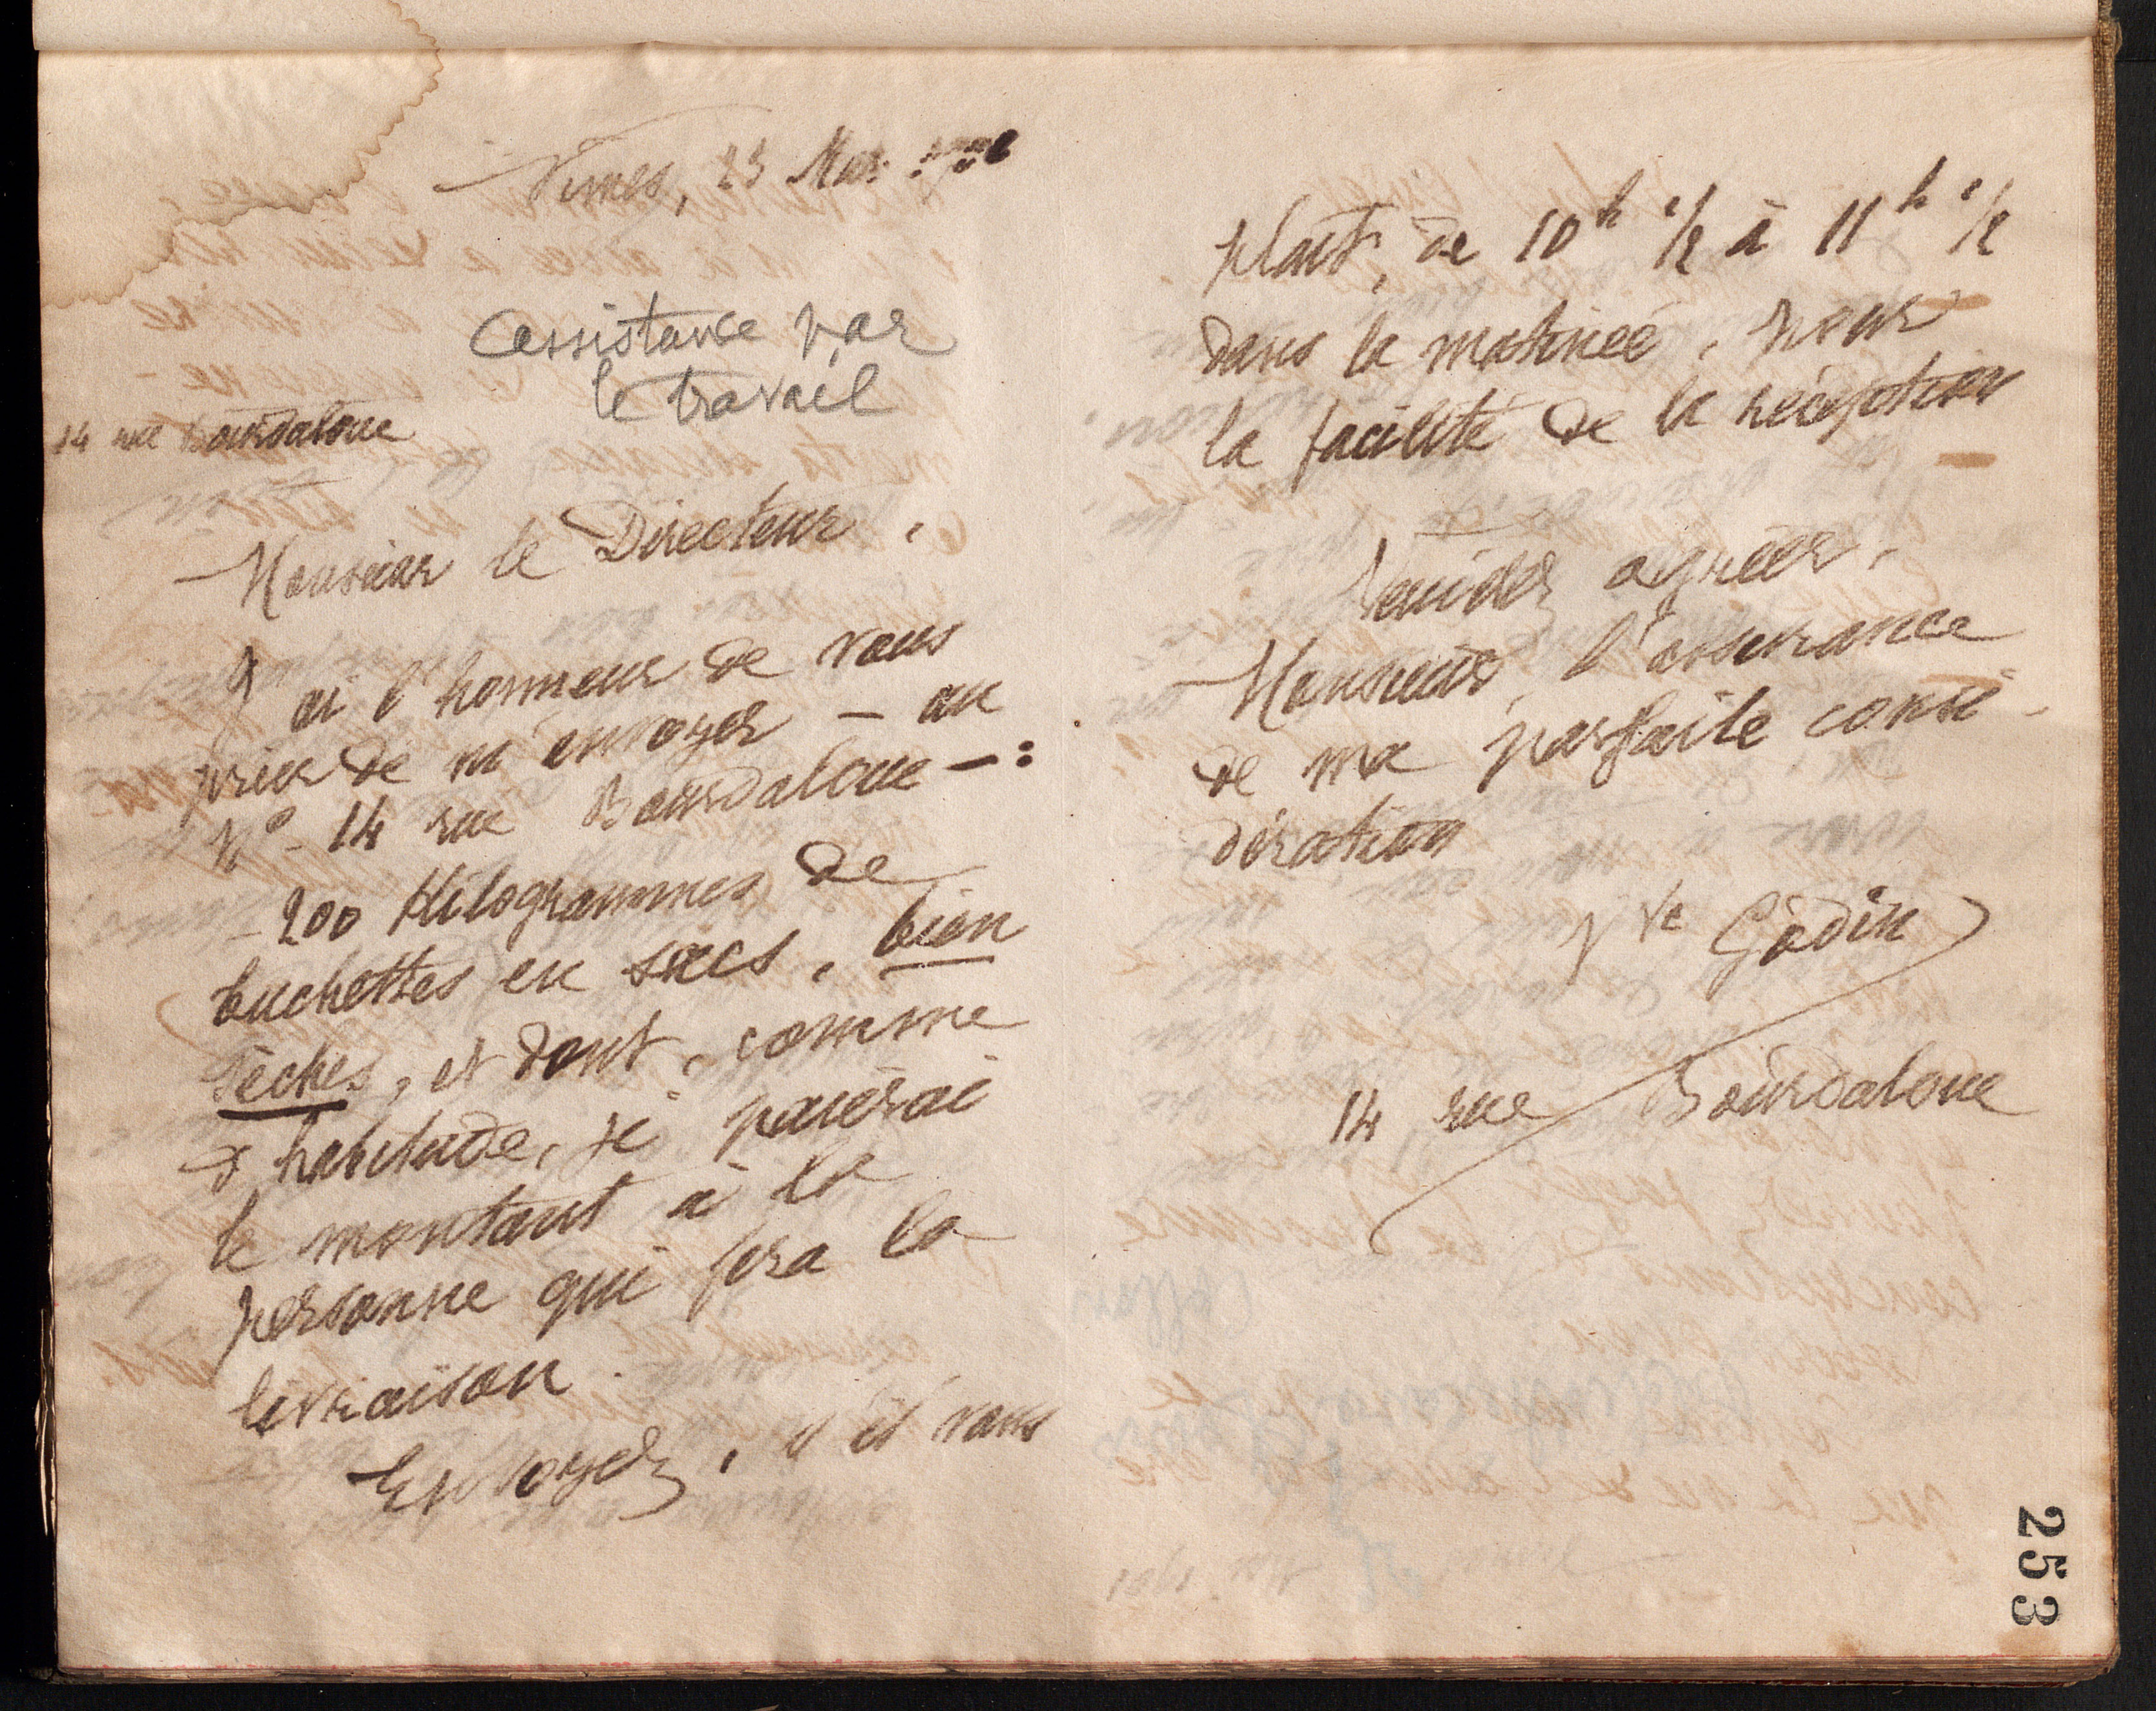 Nîmes, 23 Mai
Assistance par
le travail
14 rue Bourdaloue
Monsieur le Directeur,
J'ai l'honneur de vous
prier de m'envoyer – au
N° 14 rue Bourdaloue – :
– 200 Kilogrammes de
buchettes en sacs, bien
sèches, et dont, comme
d'habitude, je paierai
le montant à la
personne qui fera la
livraison.
Envoyez, s'il vous
plait, de 10h 1/2 à 11h 1/2
dans la matinée, pour
la facilité de la réception
Veuillez agréer,
Monsieur, l'assurance
de ma parfaite consi-
dération
Vve Godin
14 rue Bourdaloue
253